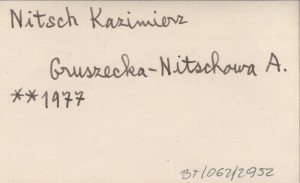 Nitsch Kazimierz
Gruszecka-Nitschowa A.
**1977
BT/062/2952